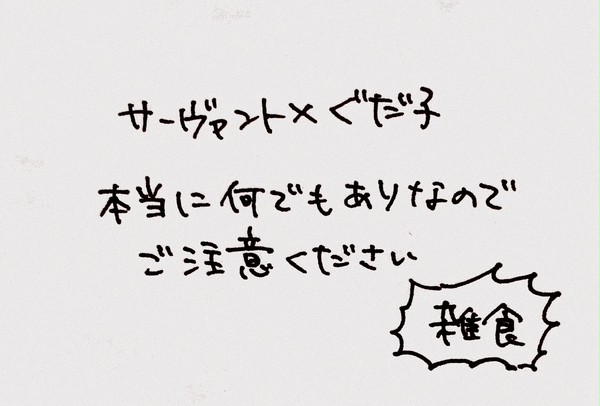 サーヴァント×ぐだ子
本当に何でもありなので
ご注意ください
雑食